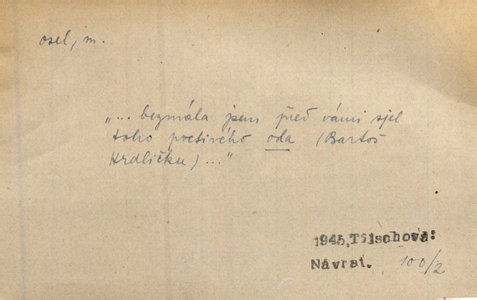 osel, m.
"... bezmála jsem před vámi sjel
toho poctivého osla (Bartoš
Hrdličku) ..."
1945, Tilschová:
Návrat. 100/2